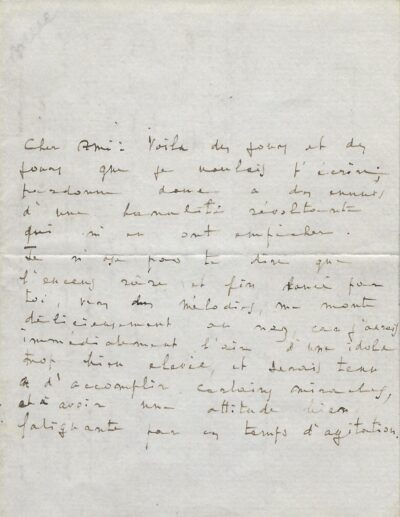 Cher Ami: Voilà des jours et des
jours que je voulais t'écrire,
pardonne donc à des ennuis
d'une banalité révoltante
qui m'en ont empêcher.
Je n'ose pas te dire que
l'encens rare et fin lancé par
toi, vers des mélodies, me monte
délicieusement au nez, car j'aurais
immédiatement l'air d'une idole
trop bien élevée, et serais tenu
d'accomplir certains miracles,
et à avoir une attitude bien
fatigante par ces temps d'agitation.